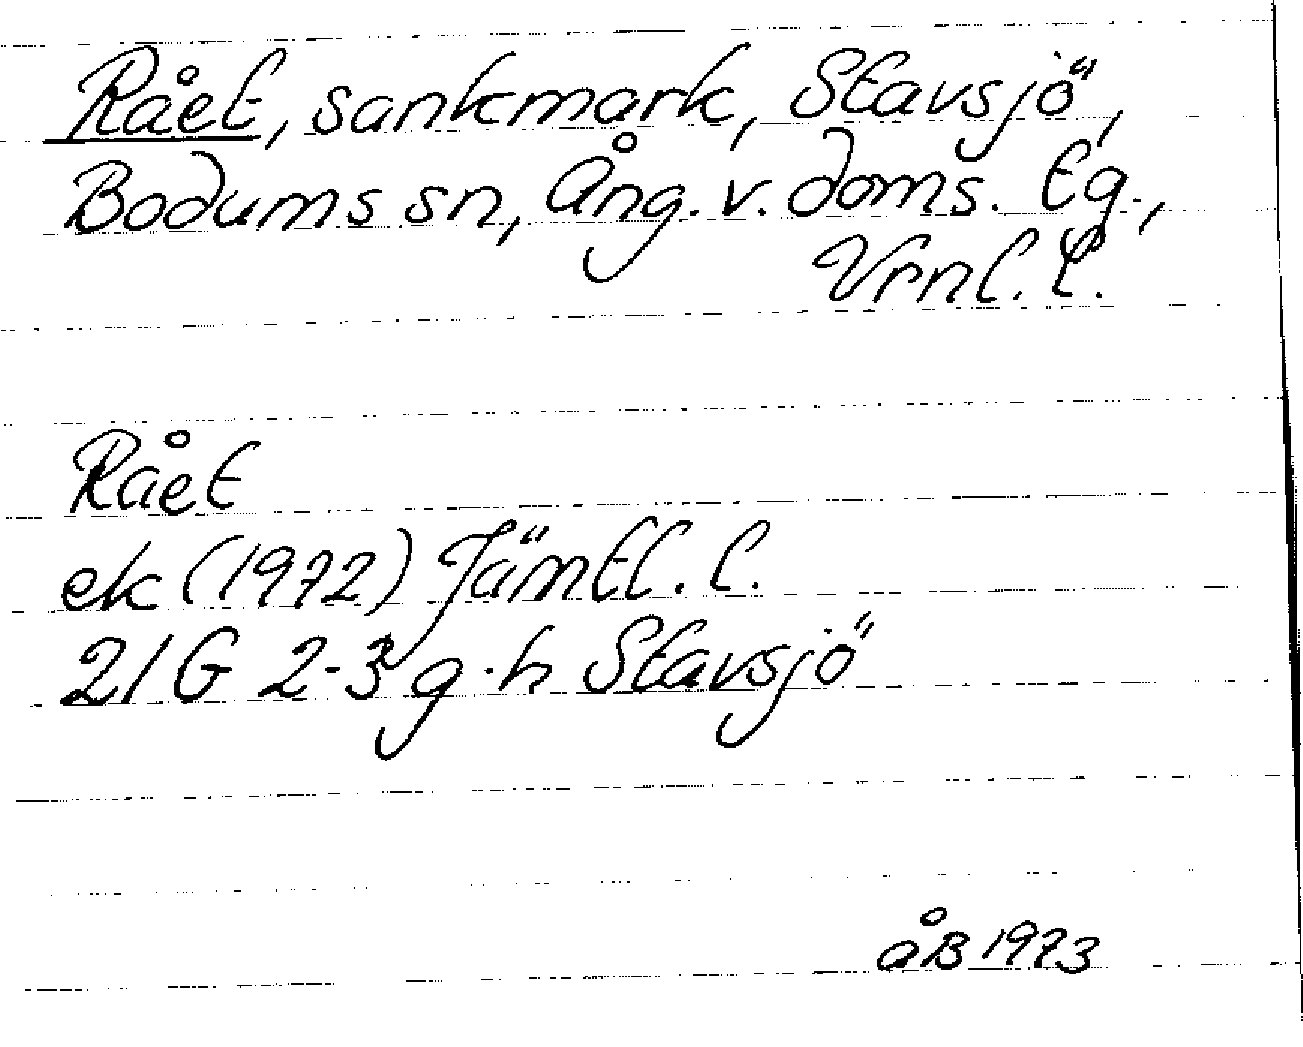 Rået, sankmark, Stavsjö,
Bodums sn, Ång. v. doms. tg.,
Vrnl. l.
Rået
ek (1972) Jämtl. l.
21G 2-3 g-h Stavsjö
åB 1973